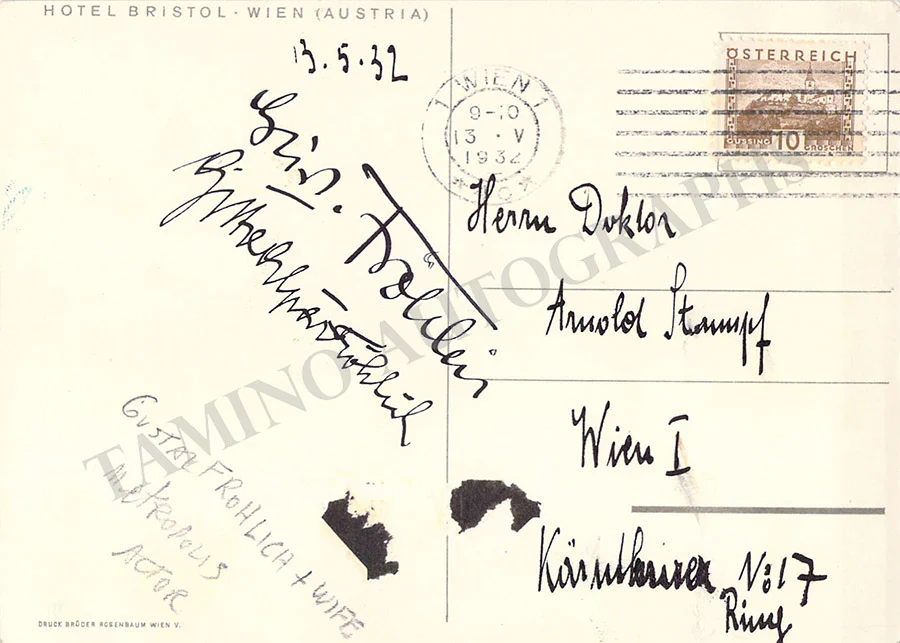 HOTEL BRISTOL · WIEN (AUSTRIA)
13.5.32
Gust. Fröhlich
GUSTAV FROHLICH + WIFE
METROPOLIS
ACTOR
DRUCK BRÜDER ROSENBAUM WIEN V.
1 WIEN 1
9-10
13 · V
1932
ÖSTERREICH
GÜSSING 10 GROSCHEN
Herrn Doktor
Arnold Stampf
Wien I
Kärnthner No 17
Ring
TAMINO AUTOGRAPHS